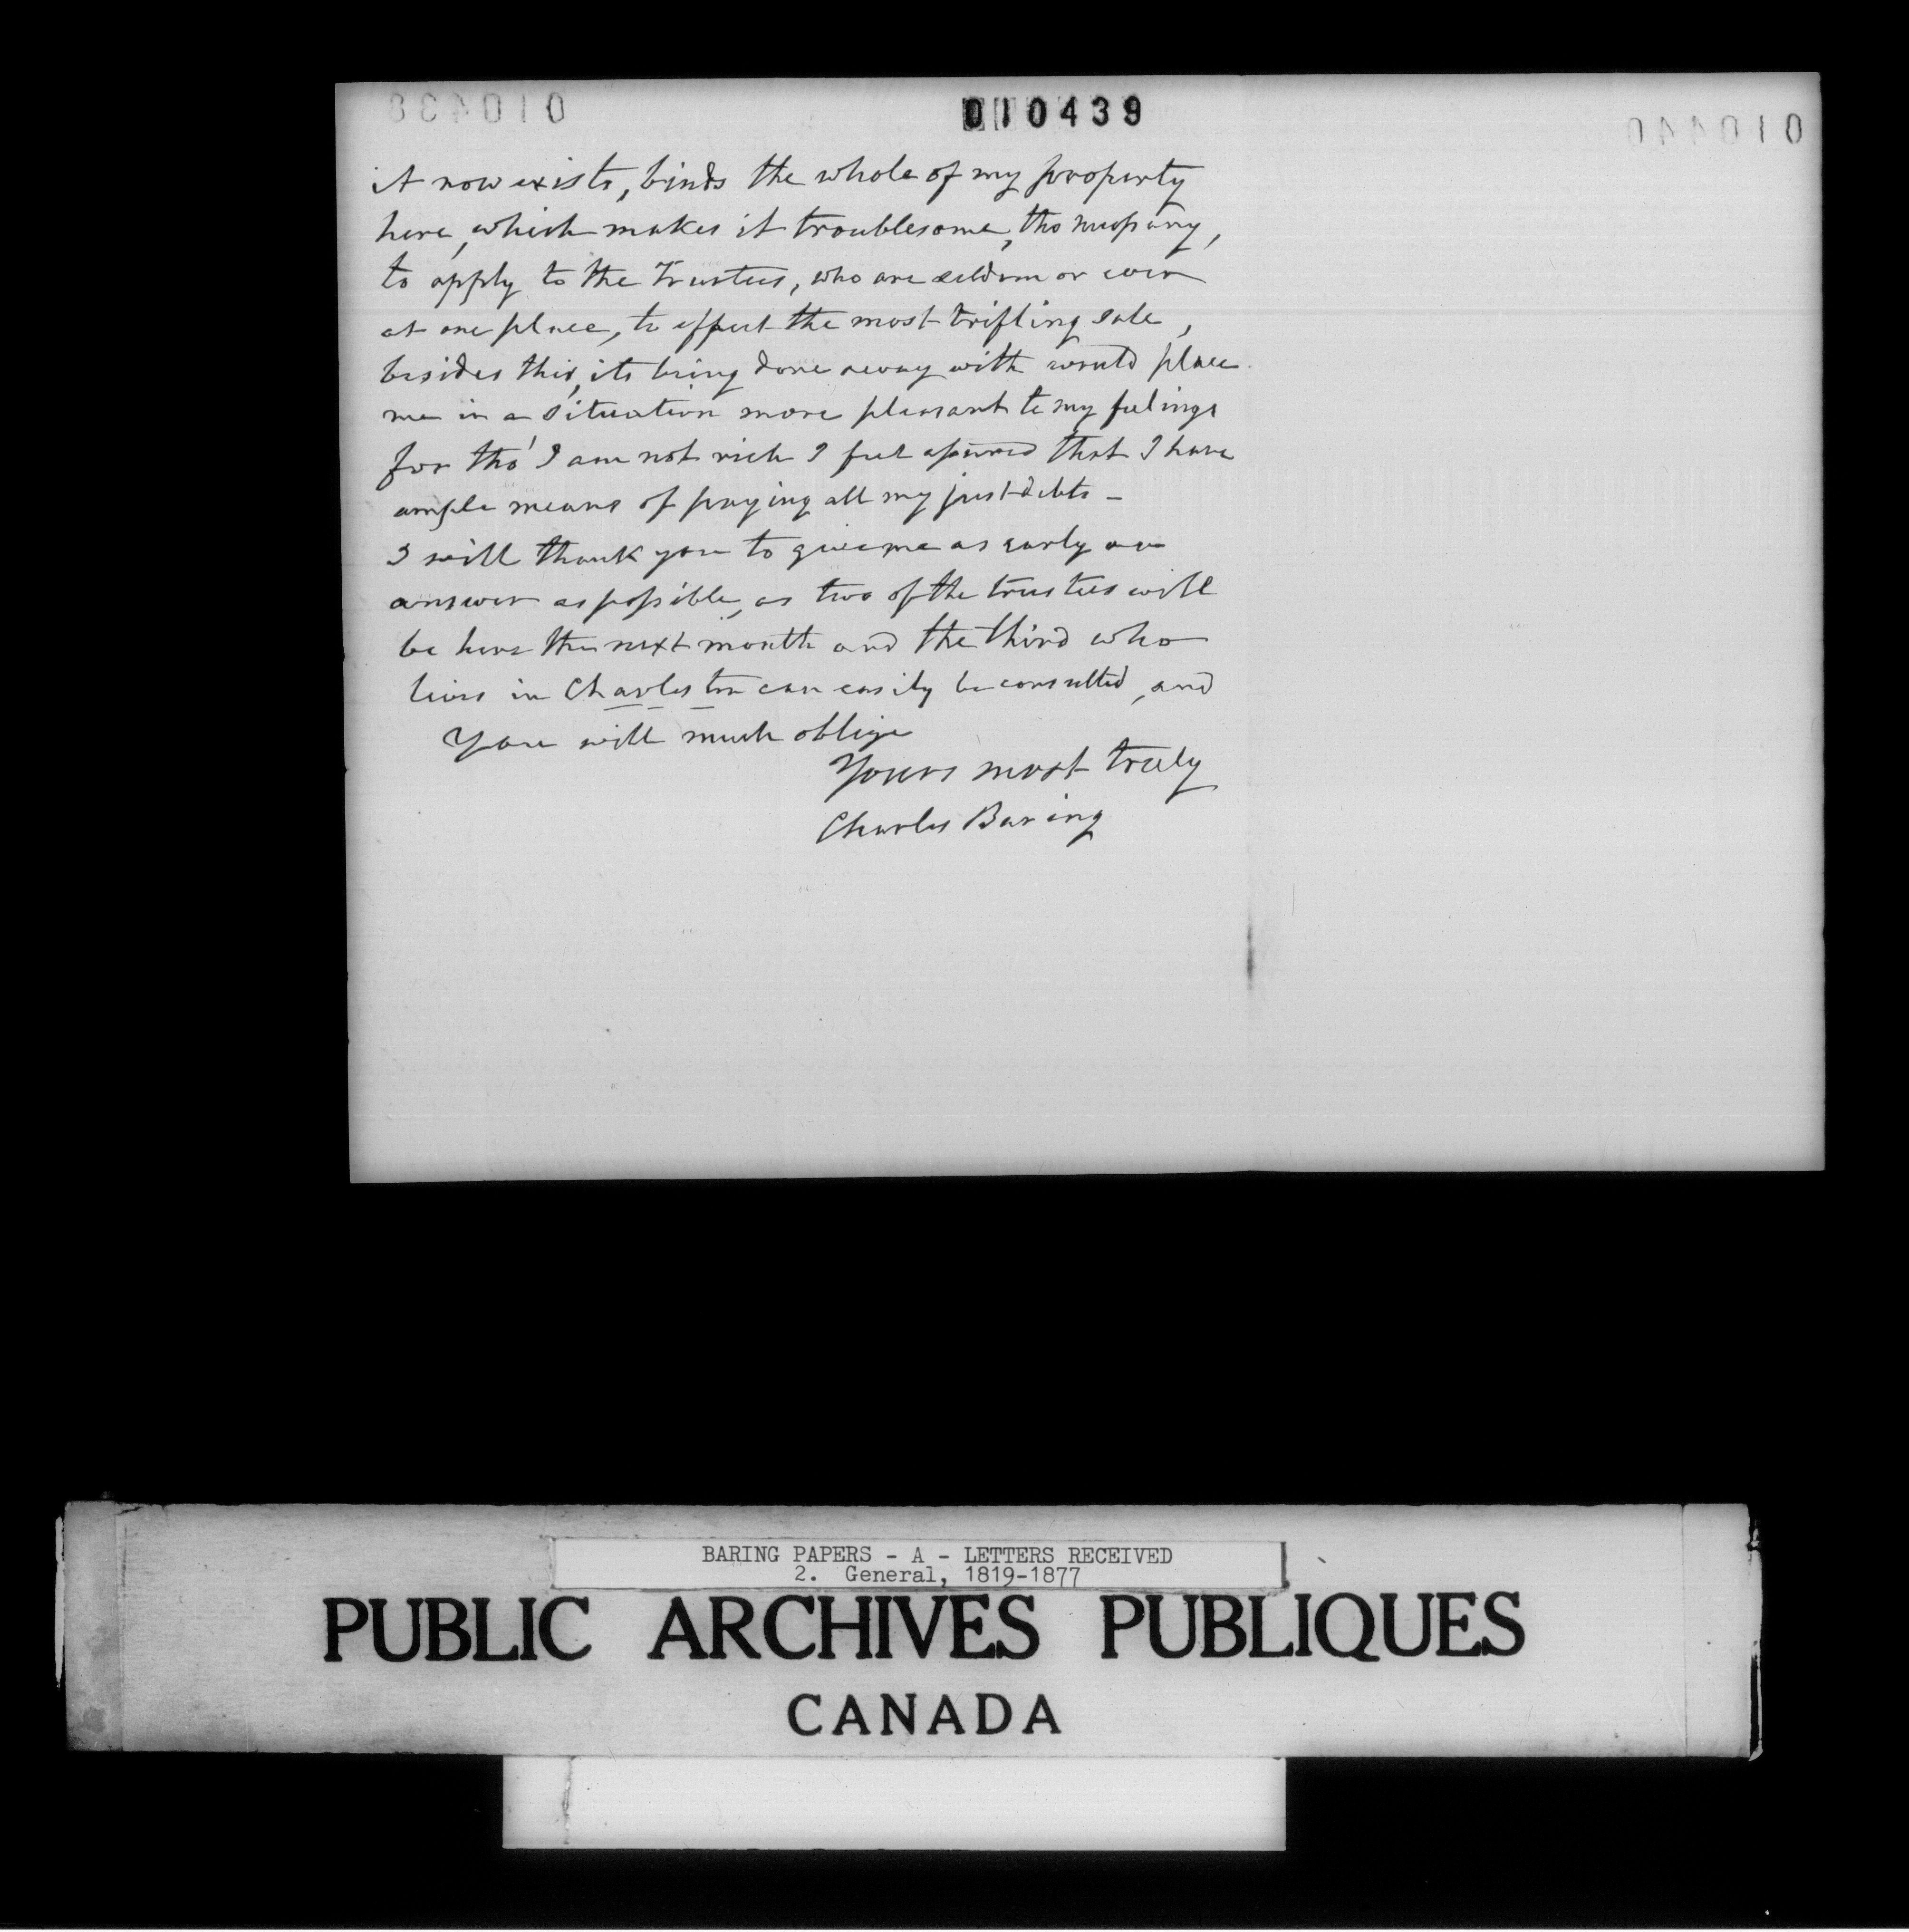 010439
it now exists, binds the whole of my property
here, which makes it troublesome, tho necessary,
to apply to the Trustees, who are seldom or ever
at one place, to effect the most trifling sale,
besides this, its being done away with would place
me in a situation more pleasant to my feelings
for tho' I am not rich I feel assured that I have
ample means of paying all my just debts -
I will thank you to give me as early an
answer as possible, as two of the trustees will
be here the next month and the third who
lives in Charleston can easily be consulted, and
you will much oblige
Yours most truly
Charles Baring
010438
010440
BARING PAPERS - A - LETTERS RECEIVED
2. General, 1819-1877
PUBLIC ARCHIVES PUBLIQUES
CANADA